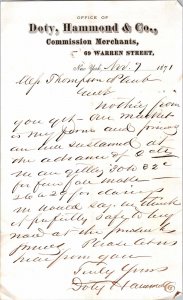 OFFICE OF
Doty, Hammond & Co.,
Commission Merchants,
69 WARREN STREET,
New York, Nov. 7 1871
Thompson
Gents
Nothing from
you yet — our market
is very firm and prices
are well sustained at
the advance of
we are selling 30 @ 32c
for
20 @ 29 for
we would say we think
it perfectly safe to buy
at the present
prices Please let us
hear from you
Truly Yours
Doty Hammond & Co